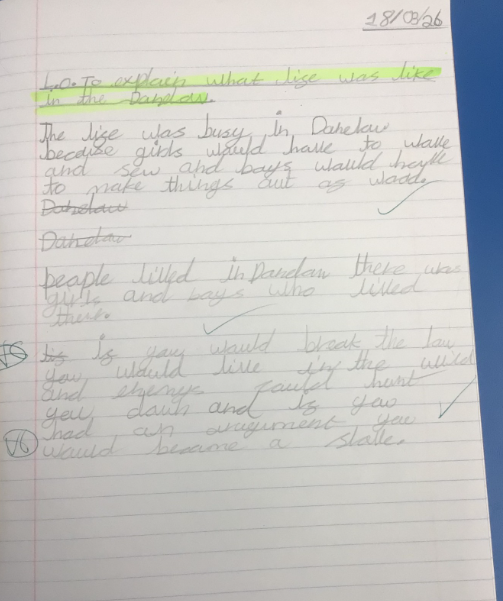 18/03/26
L.O. To explain what life was like
in the Danelaw.
The life was busy in Danelaw
because girls would have to waeve
and sew and boys would have
to make things out of wood.
Danelaw
Danelaw
people lived in Danelaw there was
girls and boys who lived
there.
if if you would break the law
you would live in the wild
and enemys could hunt
you down and if you
had an aragument you
VG would became a slave.